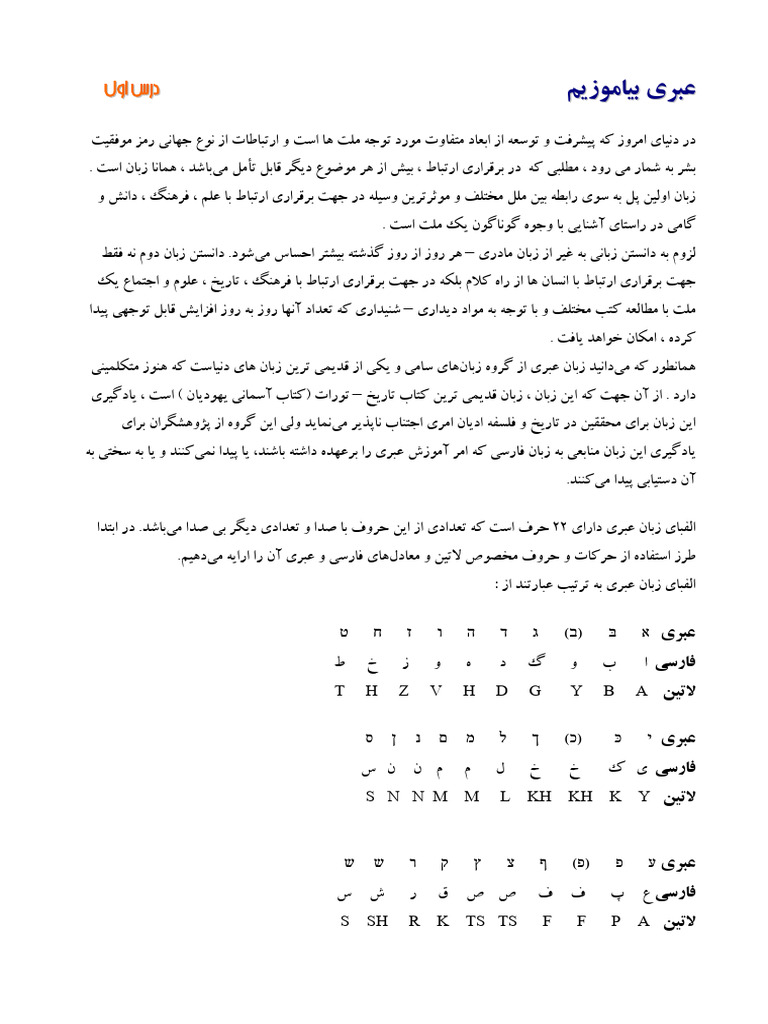 عبری بیاموزیم
درس اول
در دنیای امروز که پیشرفت و توسعه از ابعاد متفاوت مورد توجه ملت ها است و ارتباطات از نوع جهانی رمز موفقیت
بشر به شمار می رود ، مطلبی که در برقراری ارتباط ، بیش از هر موضوع دیگر قابل تأمل می‌باشد ، همانا زبان است .
زبان اولین پل به سوی رابطه بین ملل مختلف و موثرترین وسیله در جهت برقراری ارتباط با علم ، فرهنگ ، دانش و
گامی در راستای آشنایی با وجوه گوناگون یک ملت است .
لزوم به دانستن زبانی به غیر از زبان مادری – هر روز از روز گذشته بیشتر احساس می‌شود. دانستن زبان دوم نه فقط
جهت برقراری ارتباط با انسان ها از راه کلام بلکه در جهت برقراری ارتباط با فرهنگ ، تاریخ ، علوم و اجتماع یک
ملت با مطالعه کتب مختلف و با توجه به مواد دیداری – شنیداری که تعداد آنها روز به روز افزایش قابل توجهی پیدا
کرده ، امکان خواهد یافت .
همانطور که می‌دانید زبان عبری از گروه زبان‌های سامی و یکی از قدیمی ترین زبان های دنیاست که هنوز متکلمینی
دارد . از آن جهت که این زبان ، زبان قدیمی ترین کتاب تاریخ – تورات (کتاب آسمانی یهودیان ) است ، یادگیری
این زبان برای محققین در تاریخ و فلسفه ادیان امری اجتناب ناپذیر می‌نماید ولی این گروه از پژوهشگران برای
یادگیری این زبان منابعی به زبان فارسی که امر آموزش عبری را برعهده داشته باشند، یا پیدا نمی‌کنند و یا به سختی به
آن دستیابی پیدا می‌کنند.
الفبای زبان عبری دارای ۲۲ حرف است که تعدادی از این حروف با صدا و تعدادی دیگر بی صدا می‌باشد. در ابتدا
طرز استفاده از حرکات و حروف مخصوص لاتین و معادل‌های فارسی و عبری آن را ارایه می‌دهیم.
الفبای زبان عبری به ترتیب عبارتند از :
عبری א בּ (ב) ג ד ה ו ז ח ט
فارسی ا ب و گ د ه و ز خ ط
لاتین A B Y G D H V Z H T
عبری י כּ (כ) ך ל מ ם נ ן ס
فارسی ی ک خ خ ل م م ن ن س
لاتین Y K KH KH L M M N N S
عبری ע פּ (פ) ף צ ץ ק ר ש ש
فارسی ع پ ف ف ص ص ق ر ش س
لاتین A P F F TS TS K R SH S